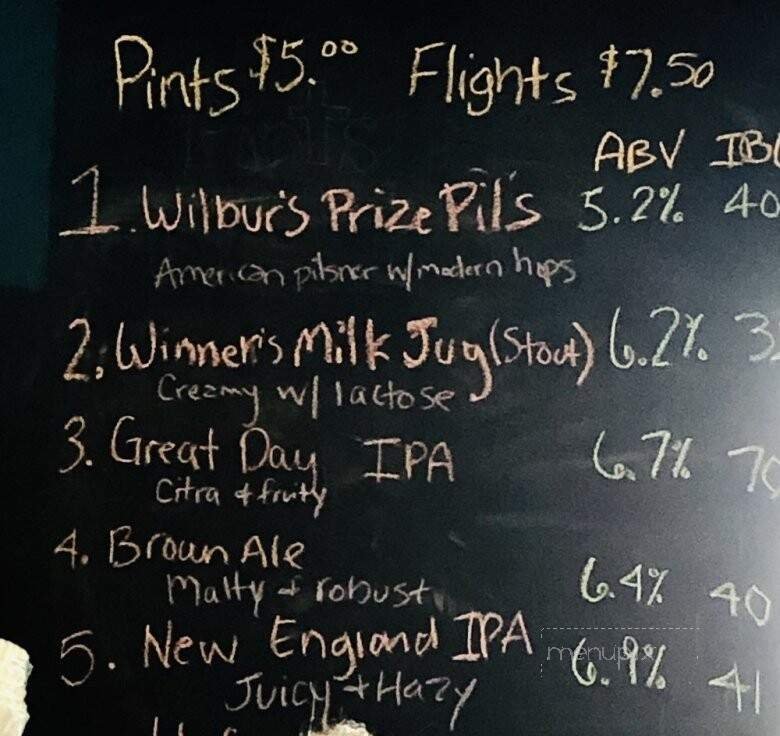 Pints $5.00 Flights $7.50
ABV IBU
1. Wilbur's Prize Pils 5.2% 40
American pilsner w/modern hops
2. Winner's Milk Jug (Stout) 6.2% 3
Creamy w/ lactose
3. Great Day IPA 6.7% 70
Citra & fruity
4. Brown Ale
Malty & robust 6.4% 40
5. New England IPA 6.9% 41
menupix
Juicy + Hazy